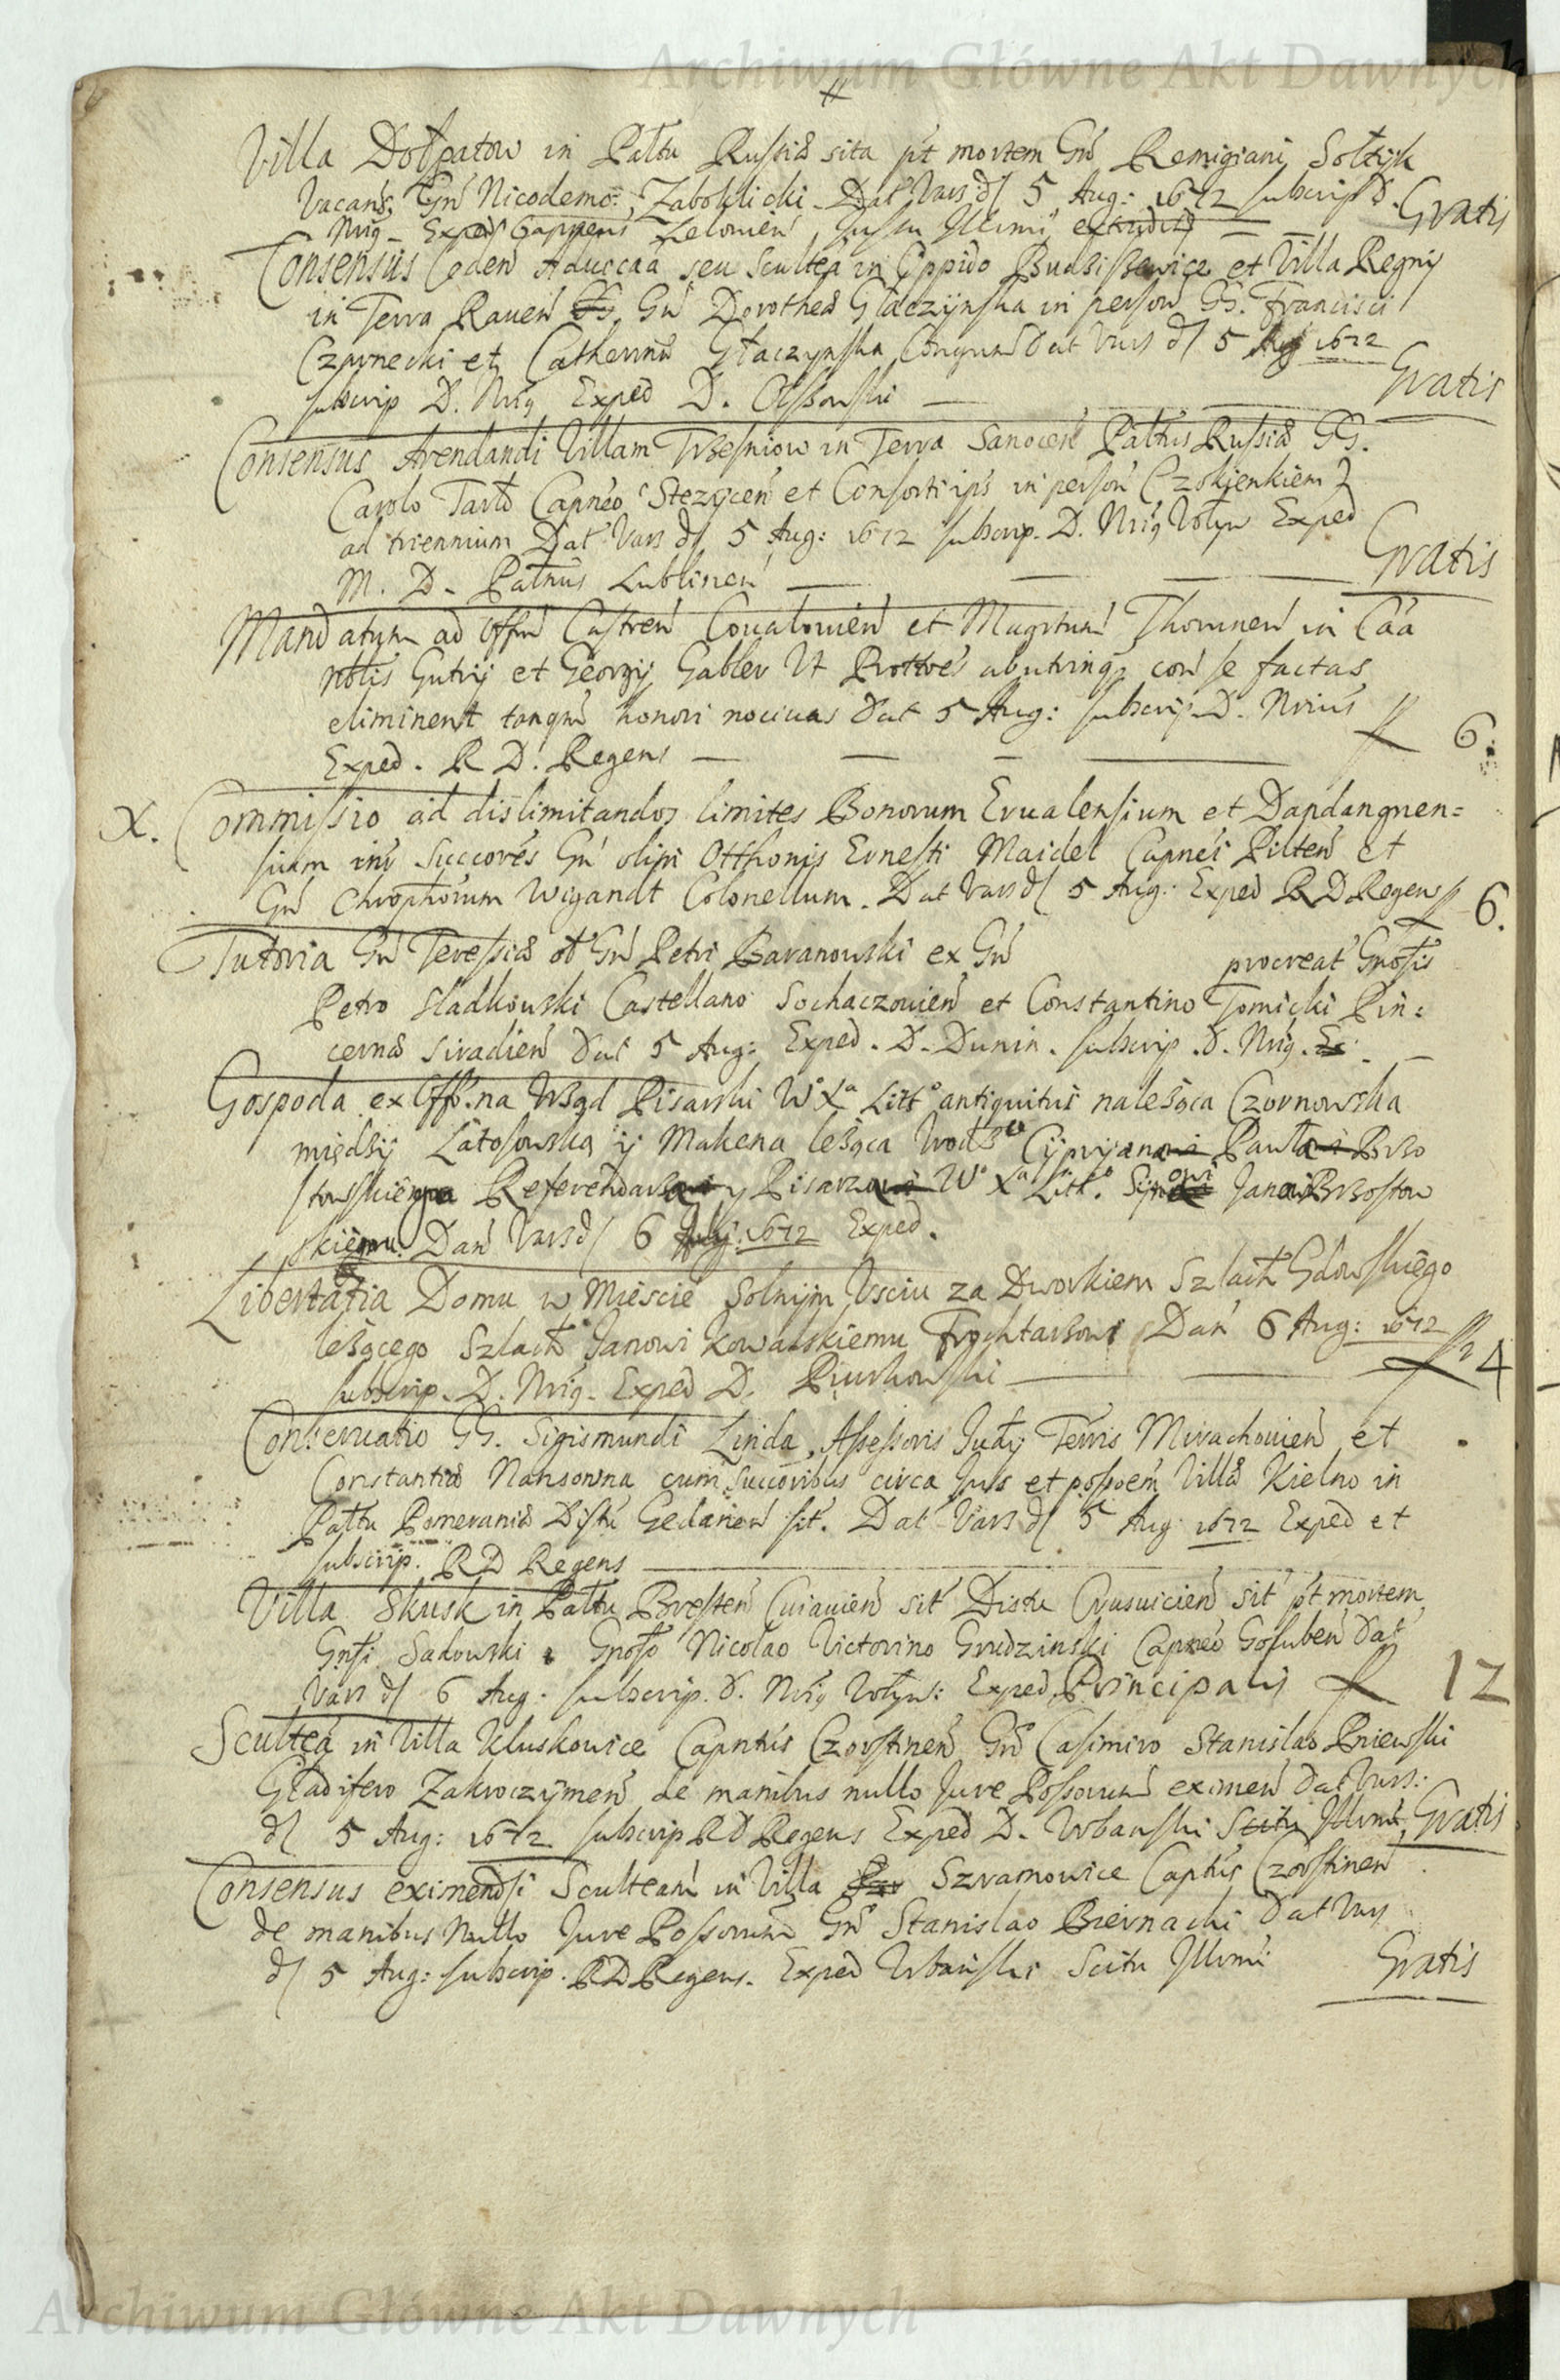 Archiwum Główne Akt Dawnych
Villa Dołpatow in Pałtu Russiæ sita pt mortem Gñi Remigiani Sołtyk
Vacans, Gñ Nicodemo Zaboklicki. Dat Vars d[ 5 Aug: 1672 subscrip D. Gratis
Nrig. Exped jussu Illrmi
Consensus Ceden Aduccaa seu Scultea in Oppido Budziszewice et Villa Regny
in Terra Rauen Gñ Dorothea Głaczÿnska in person GG. Francisci
Czarnecki et Catherinæ Głaczynska Conigum Dat Vars d[ 5 Aug 1672
subscrip D. Nrig Exped D. Olszowski Gratis
Consensus Arendandi Villam Trzesniow in Terra Sanocen Pałtus Russiæ GG.
Carolo Tarło Capneo Stezÿcen et Consorti ips in person
ad triennium Dat Vars d[ 5 Aug: 1672 subscrip. D. Nrig Wołyn Exped
M. D. Pałnus Lublinen Gratis
Mandatum ad Offm Castren Coualouien et Magrtum Thorunen in Caa
nbtis Gutrij et Georgij Gabler Ut Prottoes abutrinqз con se factas
eliminent tanqm honori nociuas Dat 5 Aug: subscrip D. Nrius
Exped. R D. Regens f 6.
X. Commissio ad dislimitandos limites Bonorum Erualensium et Dapdangnen=
sium int Succores Gñ olim Otthonis Ernesti Maidel Capnei Pilten et
Gñ Chrophorum Wigandt Colonellum. Dat Vars d[ 5 Aug: Exped R D Regens f 6.
Tutoria Gñ Teressiæ ol Gñ Petri Baranowski ex Gñ procreat Gnosis
Petro Sladkowski Castellano Sochaczouien et Constantino Tomicki Pin=
cernæ Siradien Dat 5 Aug: Exped. D. Dunin. subscrip. D. Nrig. Ex.
Gospoda ex Offo na Vrząd Pisarski Wo Xa Litto antiquitus należąca Czornowska
między Latosowską ÿ Makena leżąca Cÿpryanowi Pawłowi Brzo
stowskiego Referendarzowi ÿ Pisarzowi Wo Xa Litt.o Synowi Janowi Brzostow
skiemu. Dan Vars d[ 6 July: 1672 Exped.
Libertatia Domu w Miescie Solnÿm Vsciu za Dworkiem Szlach Gdowskiego
leżącego Szlach Janowi Kowalskiemu Frychtarzowi Dan 6 Aug: 1672
subscrip. D. Nrig. Exped D. Piurkowski f 4
Conseruatio GG. Sigismundi Linda, Assessoris Judÿ Terris Mirachouien et
Constantiæ Nansowna cum Succoribus circa Jus et possoem Villæ Kielno in
Pałtu Pomeraniæ Distu Gedanen sit. Dat Vars d[ 5 Aug 1672 Exped et
subscrip. R D Regens
Villa Skusk in Pałtu Bresten Cuiauien sit Distu Crusuicien sit pt mortem
Gnsi Sadowski Gnoso Nicolao Victorino Grudzinski Capneo Goluben Dat
Vars d[ 6 Aug: subscrip. D. Nrig Wołyn: Exped Principalis f 12
Scultea in Villa Kluskowice Capntus Czorstinen Gño Casimiro Stanislao Pniewski
Gladifero Zakroczÿmen de manibus nullo Jure Possorum eximen Dat Vars:
d[ 5 Aug: 1672 subscrip R D Regens Exped D. Vrbanski Scitu Illrmi Gratis
Consensus eximendi Scultean in Villa Szramowice Captus Czorstinen
de manibus Nullo Jure Possorum Gño Stanislao Biernacki Dat Vars
d[ 5 Aug: subscrip. R D Regens. Exped Vrbanski Scitu Illrmi Gratis
Archiwum Główne Akt Dawnych